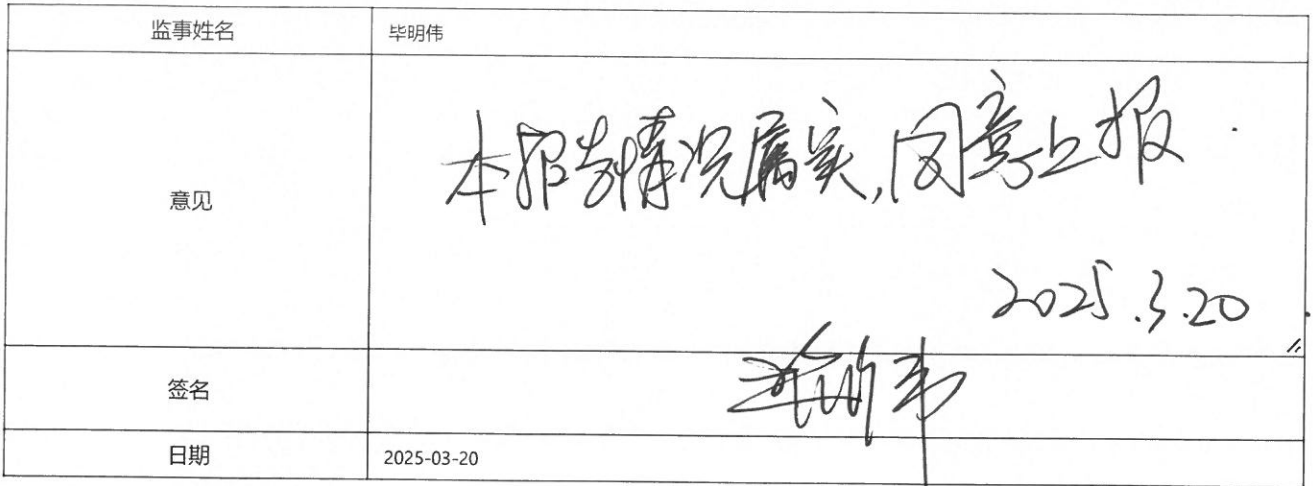 监事姓名 毕明伟
意见 本报告情况属实,同意上报.
2025.3.20
签名
日期 2025-03-20